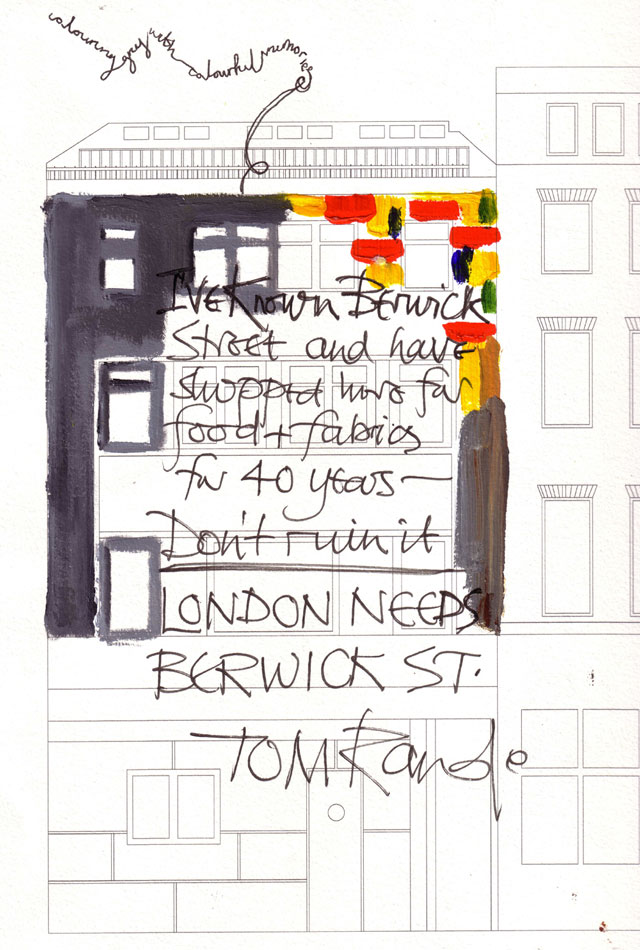 colouring grey with colourful memories
I've Known Berwick
Street and have
shopped here for
food + fabrics
for 40 years —
Don't ruin it
LONDON NEEDS
BERWICK ST.
TOM